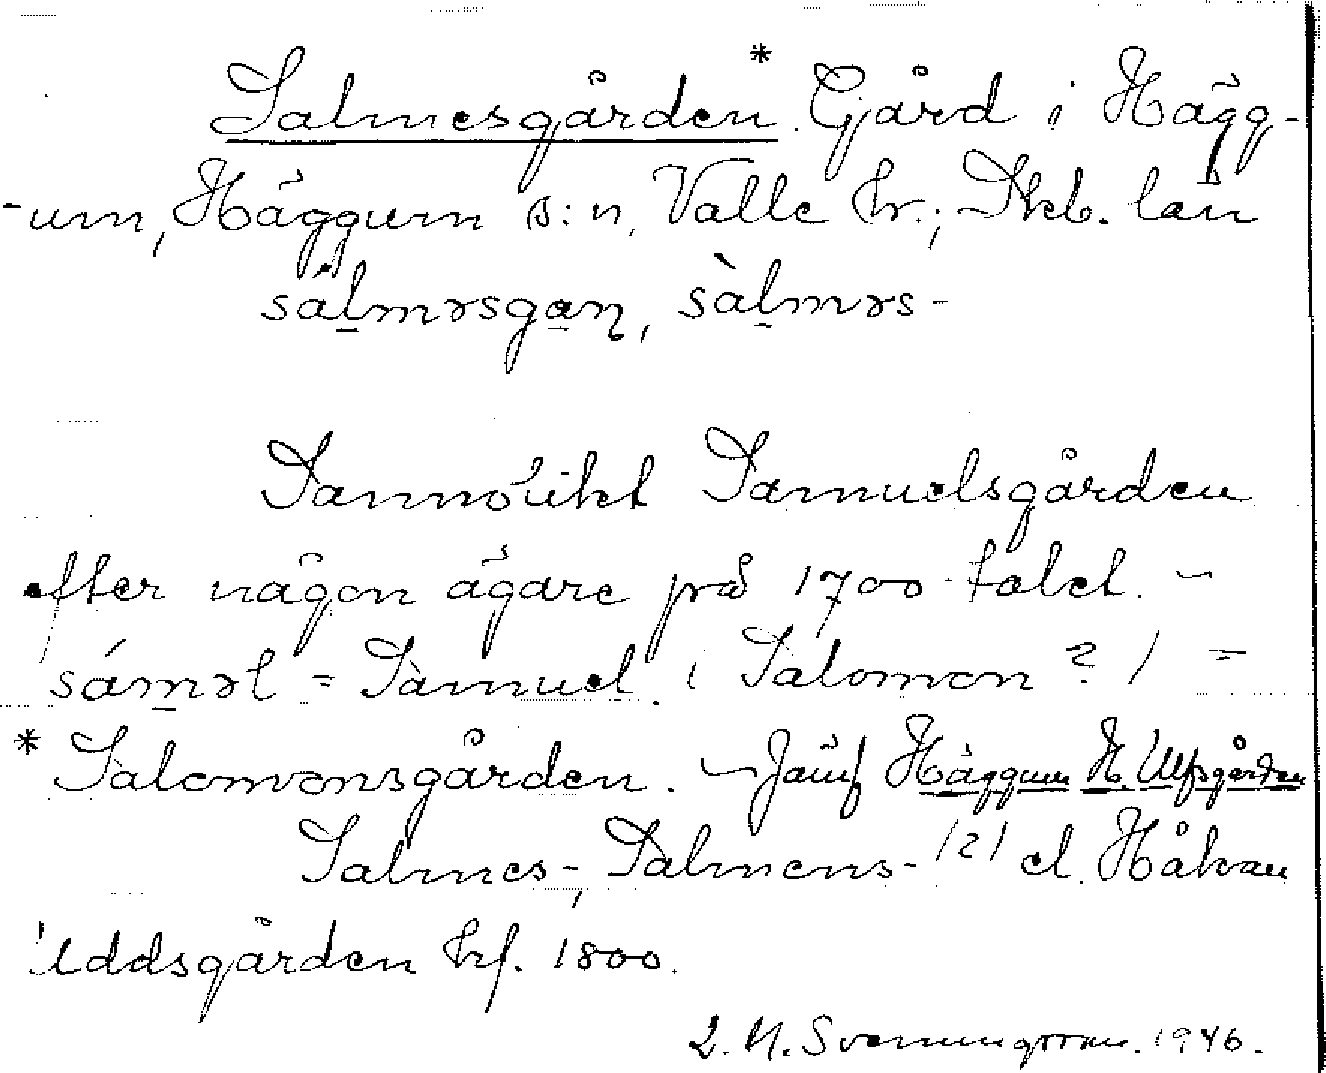 Salmesgården* Gård i Hägg-
-um, Häggum s:n, Valle hr., Skb. län
sálmǝsgaɳ, sàlmǝs-
Sannolikt Samuelsgården
efter någon ägare på 1700-talet. –
sámǝl = Samuel. (Salomon?) –
* Salomonsgården. – Jämf Häggum N. Ulfsgården
Salmes-, Salmens- /2/ el. Håkan
Uddsgården hf. 1800.
1946.